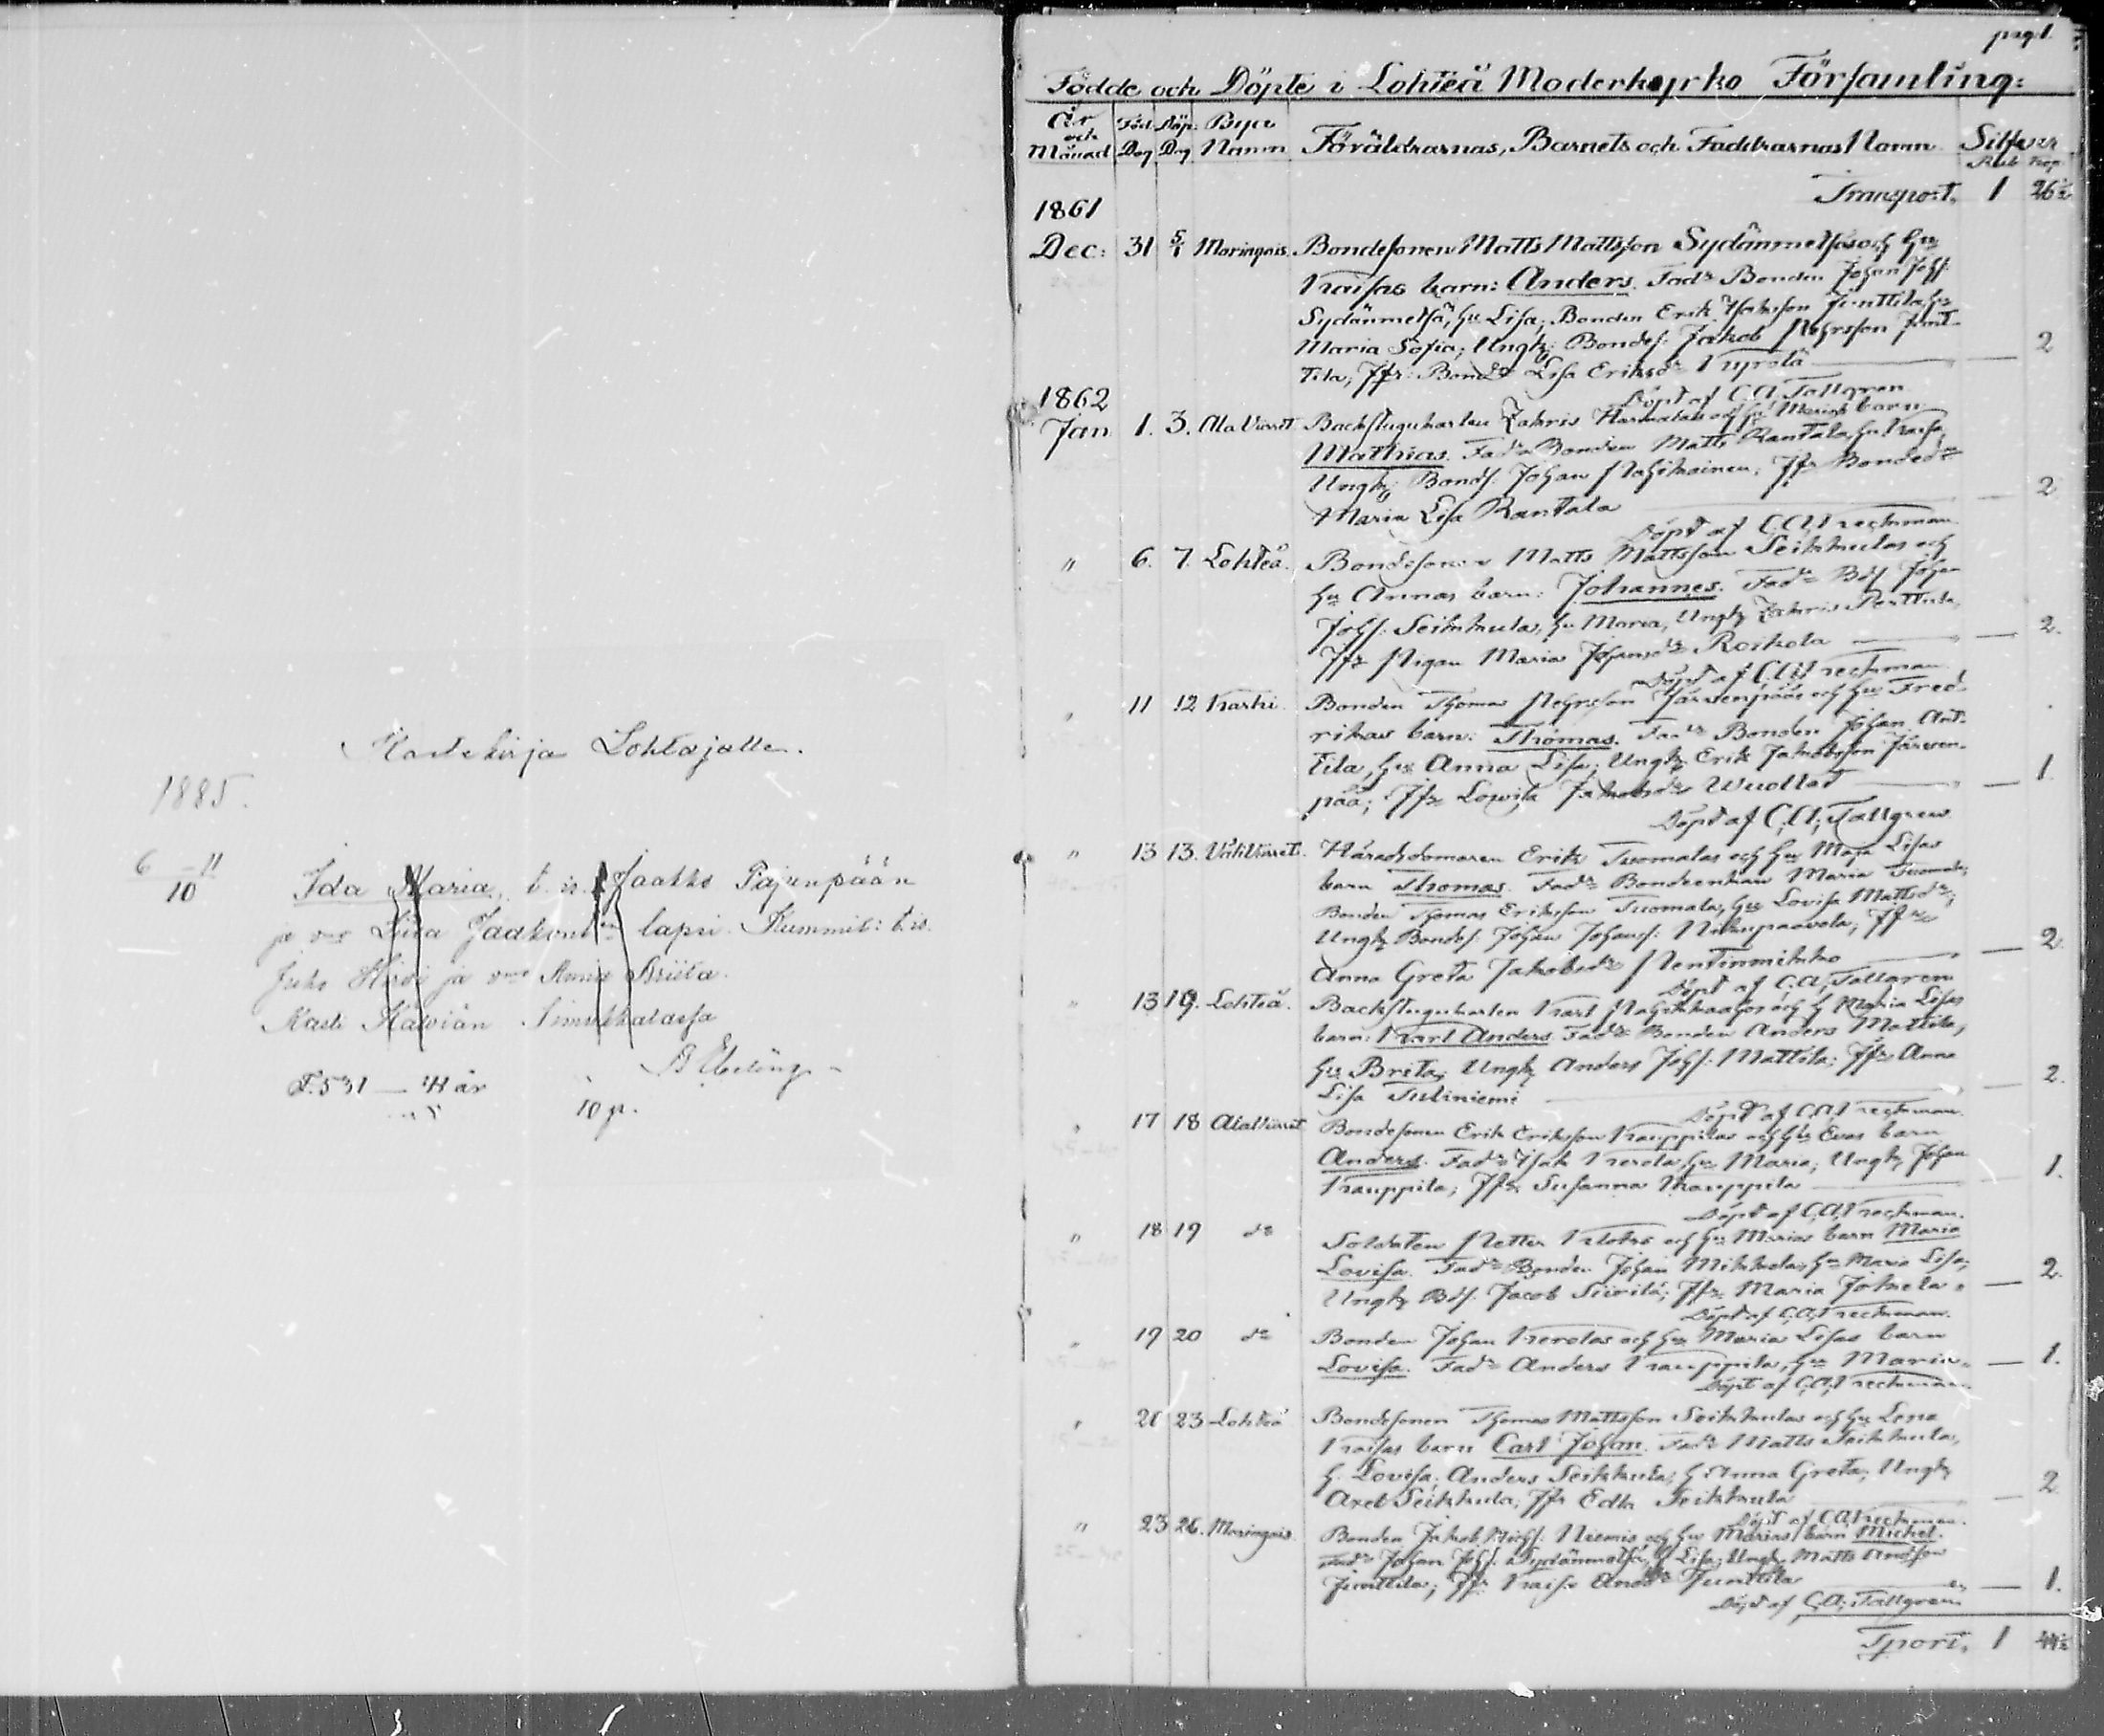 Kastekirja Lohtajalle.
1885.
6 – 11
10
Ida Maria, t. is. Jaakko Pajunpään
ja vmo Liisa Jaakont. lapsi. Kummit: t. is.
Juho Hirvi ja vmo Anna Briita.
Kast. Kälviän
F. 531 — 41 år
10 p.
pag 1.
Födde och Döpte i Lohteå Moderkyrko Församling:
År och Månad Föd. Dag Döp. Dag Byar Namn Föräldrarnas, Barnets och Faddrarnas Namn Silfver Rub Kop
Transport, 1 26½
1861
Dec: 31 5/1 Maringais. Bondesonen Matts Mattsson Sydänmetsäs och hu
Kaisas barn: Anders. Fadr Bonden Johan Johs:
Sydänmetsä, hu Lisa; Bonden Erik Isaksson Junttila, hu
Maria Sofia; Ungk: Bondes. Jakob Pehrsson Junt-
tila; Jfr: Bondr Lisa Eriksdr Kyrölä — 2
Döpt af C. A. Tallgren
1862
Jan 1. 3. Ala Viirret Backstugukarlen Zakris och hu Marias barn
Mathias. Fadr Bonden Matts Rantala, hu Kaisa,
Ungk: Bonds. Johan Jfr Bondedr
Maria Lisa Rantala — 2
Döpt af C. A. Krechman.
" 6. 7. Lohteå. Bondesonen Matts Mattsson Seikkulas och
hu Annas barn: Johannes. Fadr Bds Johan
Johs: Seikkula, hu Maria, Ungk Zakris Perttula,
Jfr Pigan Maria Johansdr Roikola — 2.
Döpt af C. A. Krechman
" 11 12 Karhi. Bonden Thomas Pehrsson Järvenpääs och hu Fred-
rikas barn: Thomas. Fadr Bonden Johan Ant-
tila, hu Anna Lisa; Ungk Erik Jakobsson Järven-
pää; Jfr Lovisa Jakobsdr Wuollet — 1.
Döpt af C. A. Tallgren
" 13 13. Väli Viirret. Häradsdomaren Erik Tuomalas och hu Maja Lisas
barn Thomas. Fadr Bondeenkan Maria Tuomala;
Bonden Thomas Eriksson Tuomala, hu Lovisa Mattsdr;
Ungk Bondes. Johan Johans. Jfr
Anna Greta Jakobsdr Pentinmikko — 2.
Döpt af C. A. Tallgren
" 13 19. Lohteå. Backstugukarlen Karl och h Maria Lisas
barn: Karl Anders. Fadr Bonden Anders Mattila,
hu Brita; Ungk Anders Johs: Mattila; Jfr Anna
Lisa Tuliniemi — 2.
Döpt af C. A. Krechman.
" 17 18 Ala Viirret Bondesonen Erik Eriksson Kauppilas och hu Evas barn
Anders. Fadr Isak Kerola, hu Maria, Ungk Johan
Kauppila; Jfr Susanna Kauppila — 1.
Döpt af C. A. Krechman.
" 18 19 do Soldaten Petter Klokrs och hu Marias barn Maria
Lovisa. Fadr Bonden Johan Mikkola, hu Maria Lisa;
Ungk Bds. Jacob Siirilä; Jfr Maria Jokela. — 2.
Döpt af C. A. Krechman.
" 19 20 do Bonden Johan Kerolas och hu Maria Lisas barn
Lovisa. Fadr Anders Kauppila, hu Maria. — 1.
Döpt af C. A. Krechman
" 20 23 Lohteå Bondesonen Thomas Mattsson Seikkulas och hu Lena
Kaisas barn Carl Johan. Fadr Matts Seikkula,
h. Lovisa; Anders Seikkula, h Anna Greta; Ungk
Axel Seikkula; Jfr Edla Seikkula — 2
Döpt af C. A. Krechman.
" 23 26. Maringais. Bonden Jakob Niemis och hu Marias barn Michel.
Fadr Johan Johs: Sydänmetsä, h Lisa; Ungk. Matts Andsson
Junttila; Jfr Kaisa Andrsdr Junttila — 1.
Döpt af C. A. Tallgren
Tport, 1 44½